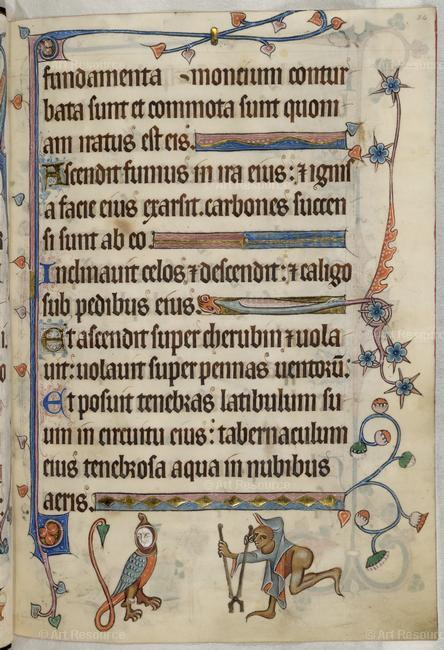 34
fundamenta moncium contur
bata sunt et commota sunt quoni
am iratus est eis.
Ascendit fumus in ira eius: ⁊ ignis
a facie eius exarsit. carbones succen
si sunt ab eo.
Inclinauit celos ⁊ descendit: ⁊ caligo
sub pedibus eius.
Et ascendit super cherubin ⁊ uola
uit: uolauit super pennas uentorū.
Et posuit tenebras latibulum su
um in circuitu eius: tabernaculum
eius tenebrosa aqua in nubibus
aeris.
© Art Resource
© Art Resource